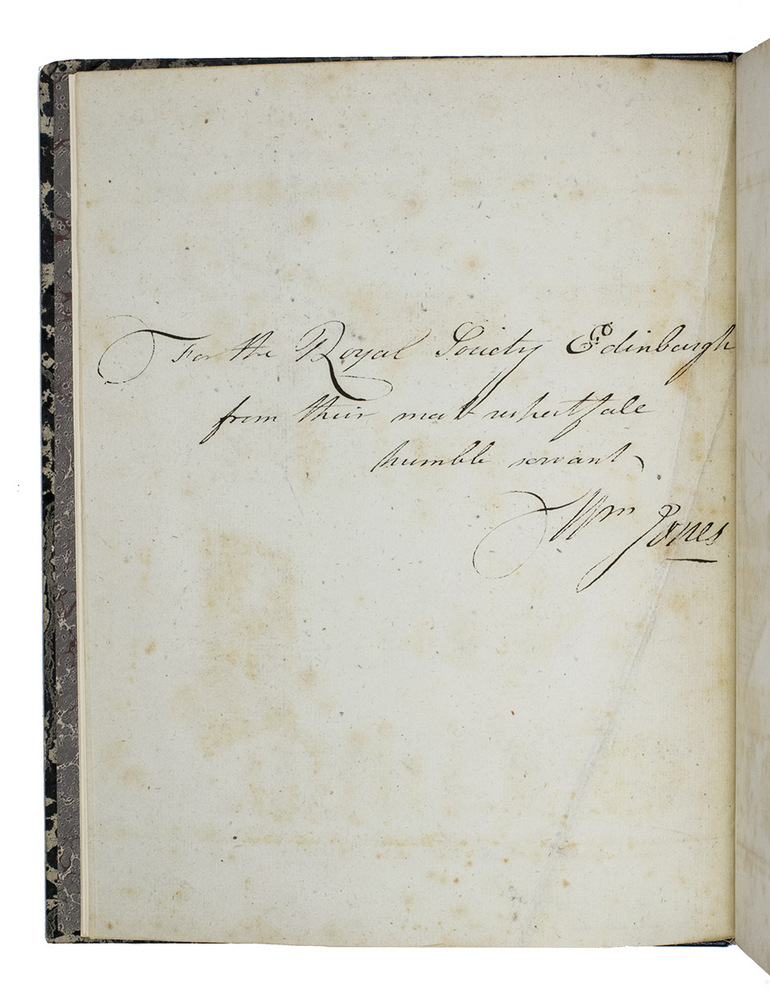 For the Royal Society Edinburgh
from their most respectfull
humble servant
Wm Jones